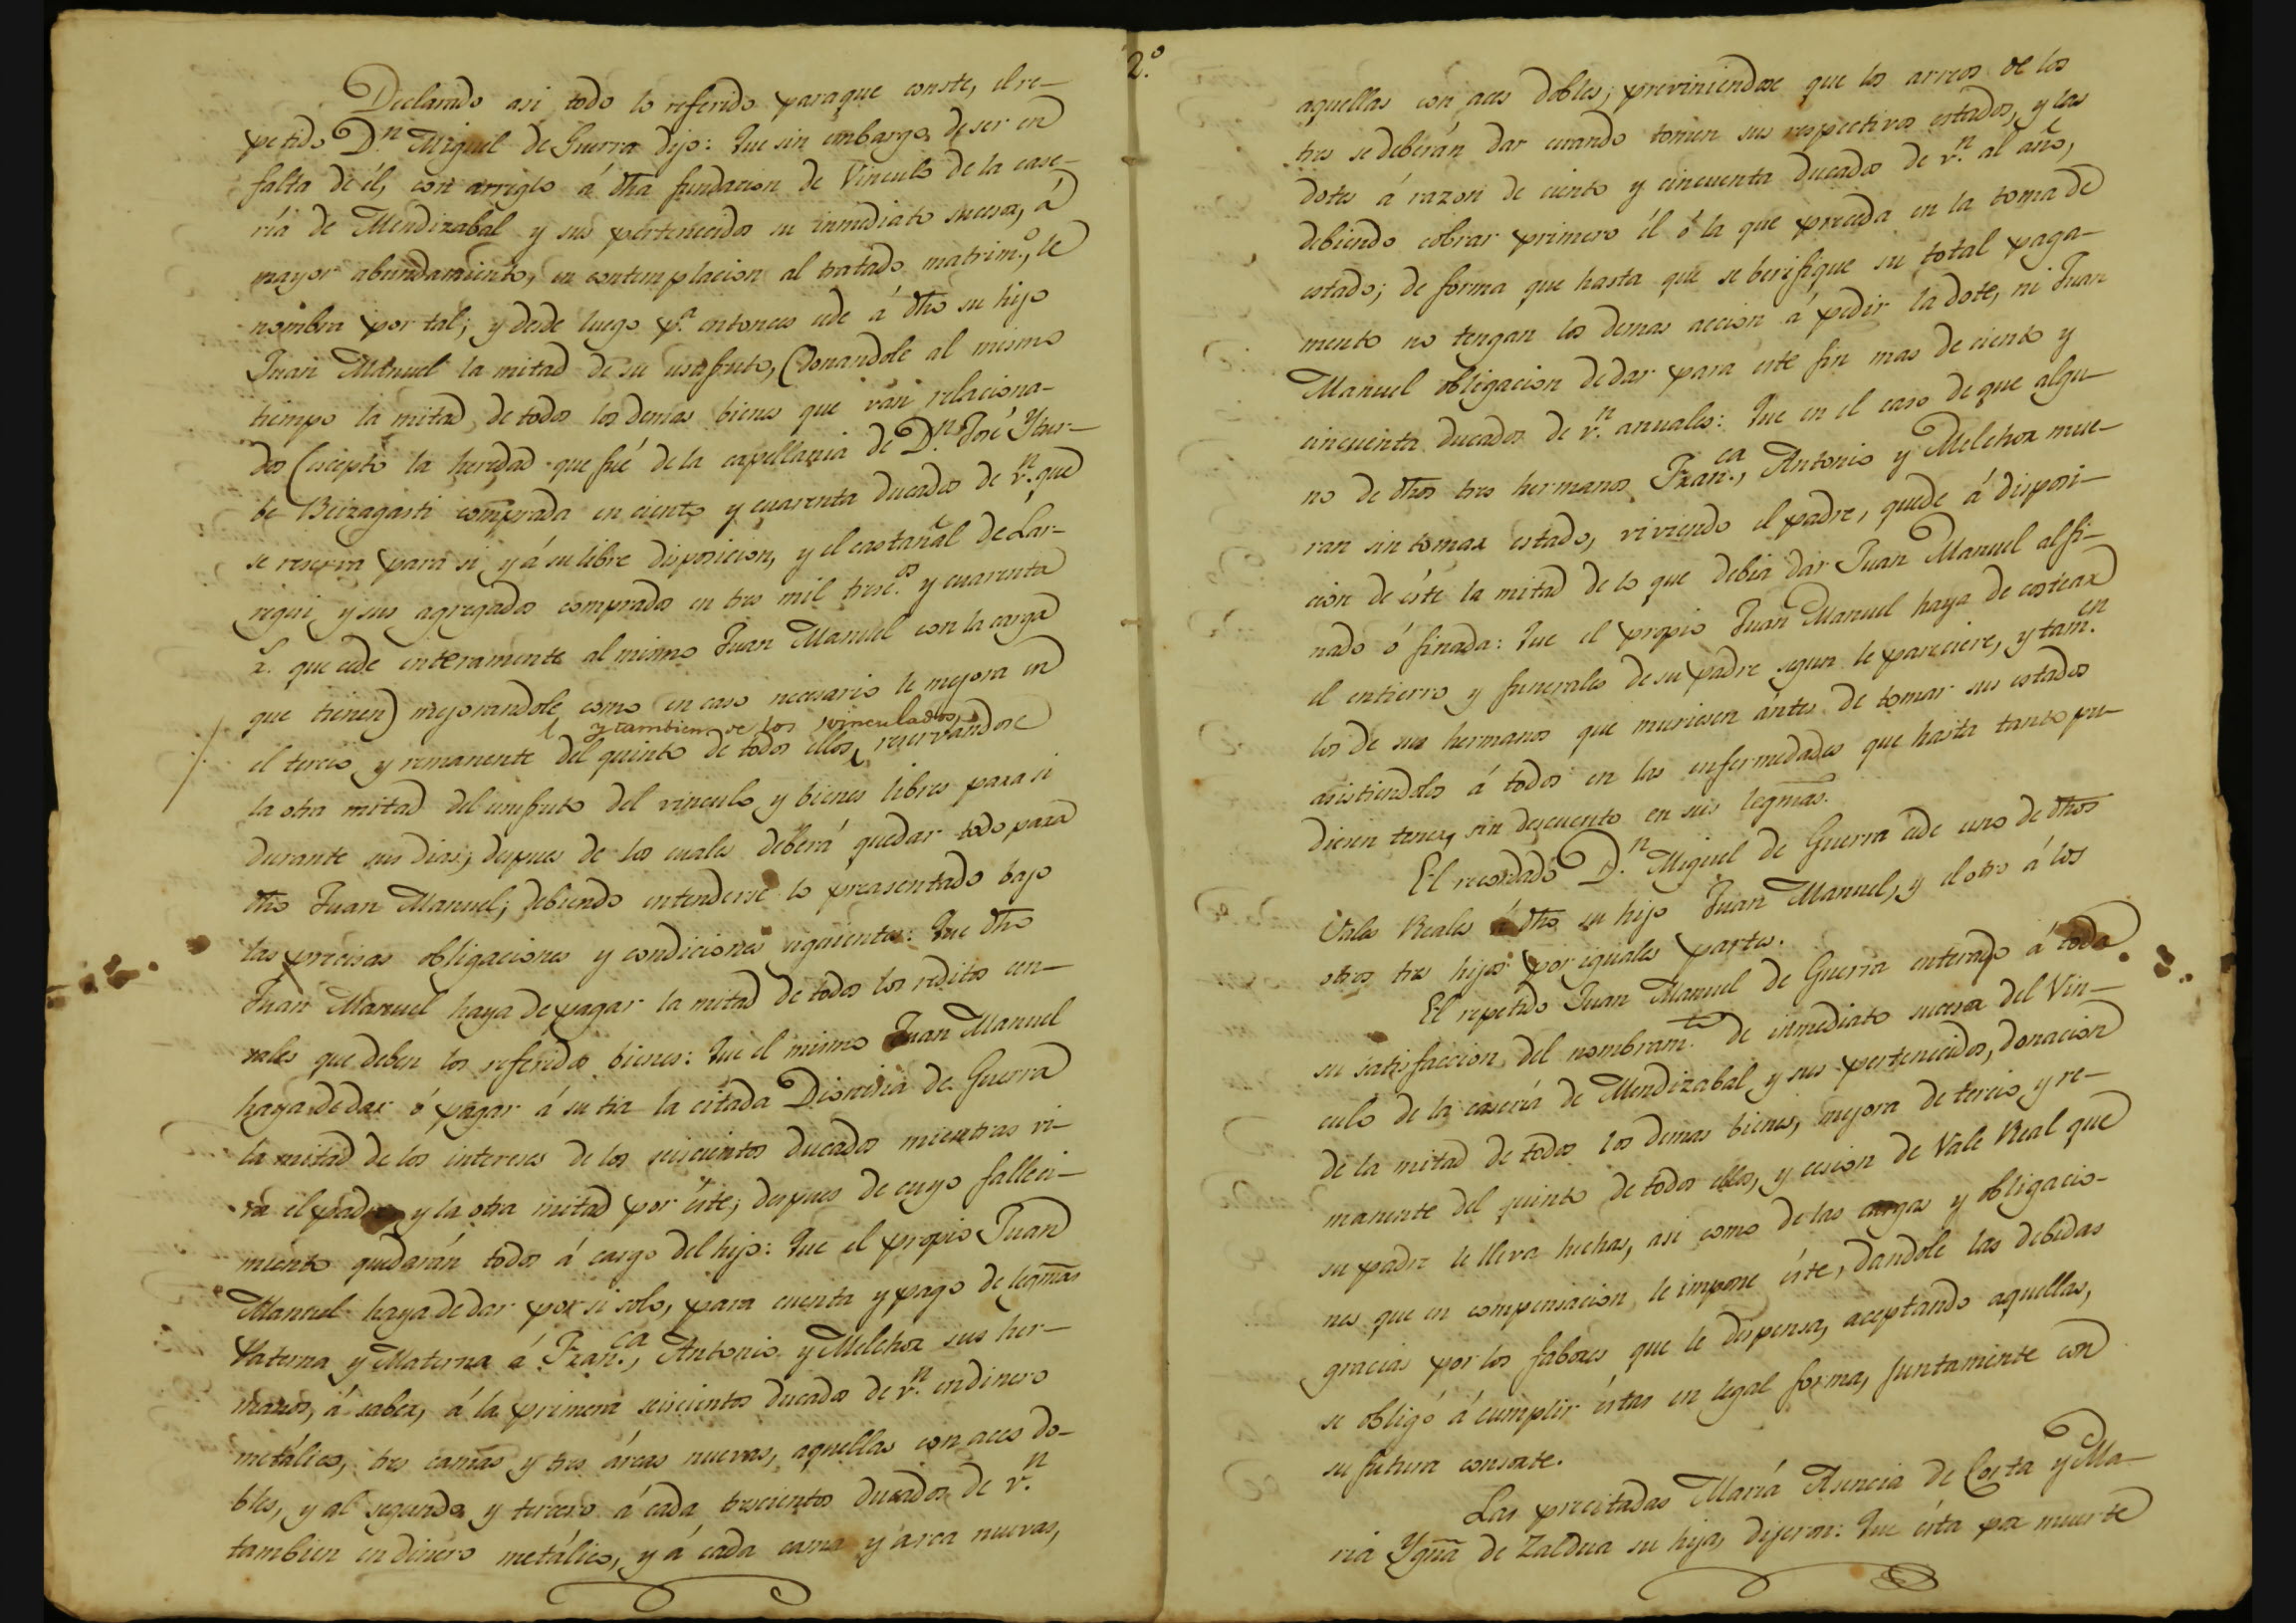 Declarado asi todo lo referido paraque conste, el re-
petido Dn. Miguel de Guerra dijo: Que sin embargo de ser en
falta de él, con arriglo á dha fundacion de Vinculo de la case-
ría de Mendizabal y sus pertenecidos su inmediato sucesor, á
mayor abundamiento, en contemplacion al tratado matrimo., le
nombra por tal; y desde luego pa. entonces cede á dho su hijo
Juan Manuel la mitad de su usufruto, donandole al mismo
tiempo la mitad de todos los demas bienes que ván relaciona-
dos (escepto la heredad que fué de la capellania de Dn. José Ybar-
be Beizagasti comprada en ciento y cuarenta ducados de vn. que
se reserva para si y á su libre disposicion, y el castañal de Lar-
regui y sus agregados comprados en tres mil tresc.os y cuarenta
rs. que cede enteramente al mismo Juan Manuel con la carga
que tienen) mejorandole, como en caso necesario le mejora en
y tambien de los vinculados,
el tercio y remanente del quinto de todos ellos, reservandose
la otra mitad del usufruto del vinculo y bienes libres para si
durante sus dias; despues de los cuales deberá quedar todo para
dho Juan Manuel; debiendo entenderse lo preasentado bajo
las precisas obligaciones y condiciones siguientes: Que dho
Juan Manuel haya de pagar la mitad de todos los reditos cen-
suales que deben los referidos bienes: Que el mismo Juan Manuel
haya de dar ó pagar á su tia la citada Dionisia de Guerra
la mitad de los intereses de los seiscientos ducados mientras vi-
va el padre y la otra mitad por éste; despues de cuyo falleci-
miento quedarán todos á cargo del hijo: Que el propio Juan
Manuel haya de dar por si solo, para cuenta y pago de legmas
Paterna y Materna á Fran.ca, Antonio y Melchor sus her-
manos, á saber, á la primera seiscientos ducados de vn. en dinero
metálico, tres camas y tres árcas nuevas, aquellas con aces do-
bles, y al segundo y tercero á cada trescientos ducados de vn.
tambien en dinero metálico, y á cada cama y arca nuevas,
2.o
aquellas con aces dobles; previniendose que los arreos de los
tres se deberán dar cuando tomen sus respectivos estados, y las
dotes á razon de ciento y cincuenta ducados de vn. al año,
debiendo cobrar primero él ó la que preceda en la toma de
estado; de forma que hasta que se berifique su total paga-
mento no tengan los demas accion á pedir la dote, ni Juan
Manuel obligacion de dar para este fin mas de ciento y
cincuenta ducados de vn. anuales: Que en el caso de que algu-
no de dhos tres hermanos Fran.ca, Antonio y Melchor mue-
ran sin tomar estado, viviendo el padre, quede á disposi-
cion de éste la mitad de lo que debia dar Juan Manuel al fi-
nado ó finada: Que el propio Juan Manuel haya de costear
el entierro y funerales de su padre segun le pareciere, y tam.en
los de sus hermanos que muriesen ántes de tomar sus estados
asistiendoles á todos en las enfermedades que hasta tanto pu-
diesen tener, sin descuento en sus legmas.
El recordado Dn. Miguel de Guerra cede uno de dhos
Vales Reales á dho su hijo Juan Manuel, y el otro á los
otros tres hijos por iguales partes.
El repetido Juan Manuel de Guerra enterado á toda
su satisfaccion del nombram.to de inmediato sucesor del Vin-
culo de la casería de Mendizabal y sus pertenecidos, donacion
de la mitad de todos los demas bienes, mejora de tercio y re-
manente del quinto de todos ellos, y cesion de Vale Real que
su padre le lleva hechas, asi como de las cargas y obligacio-
nes que en compensacion le impone éste, dandole las debidas
gracias por los fabores que le dispensa, aceptando aquellas,
se obligó á cumplir éstas en legal forma, juntamente con
su futura consorte.
Las precitadas María Asencia de Costa y Ma-
ria Ygna de Zaldua su hija, dijeron: Que ésta por muerte